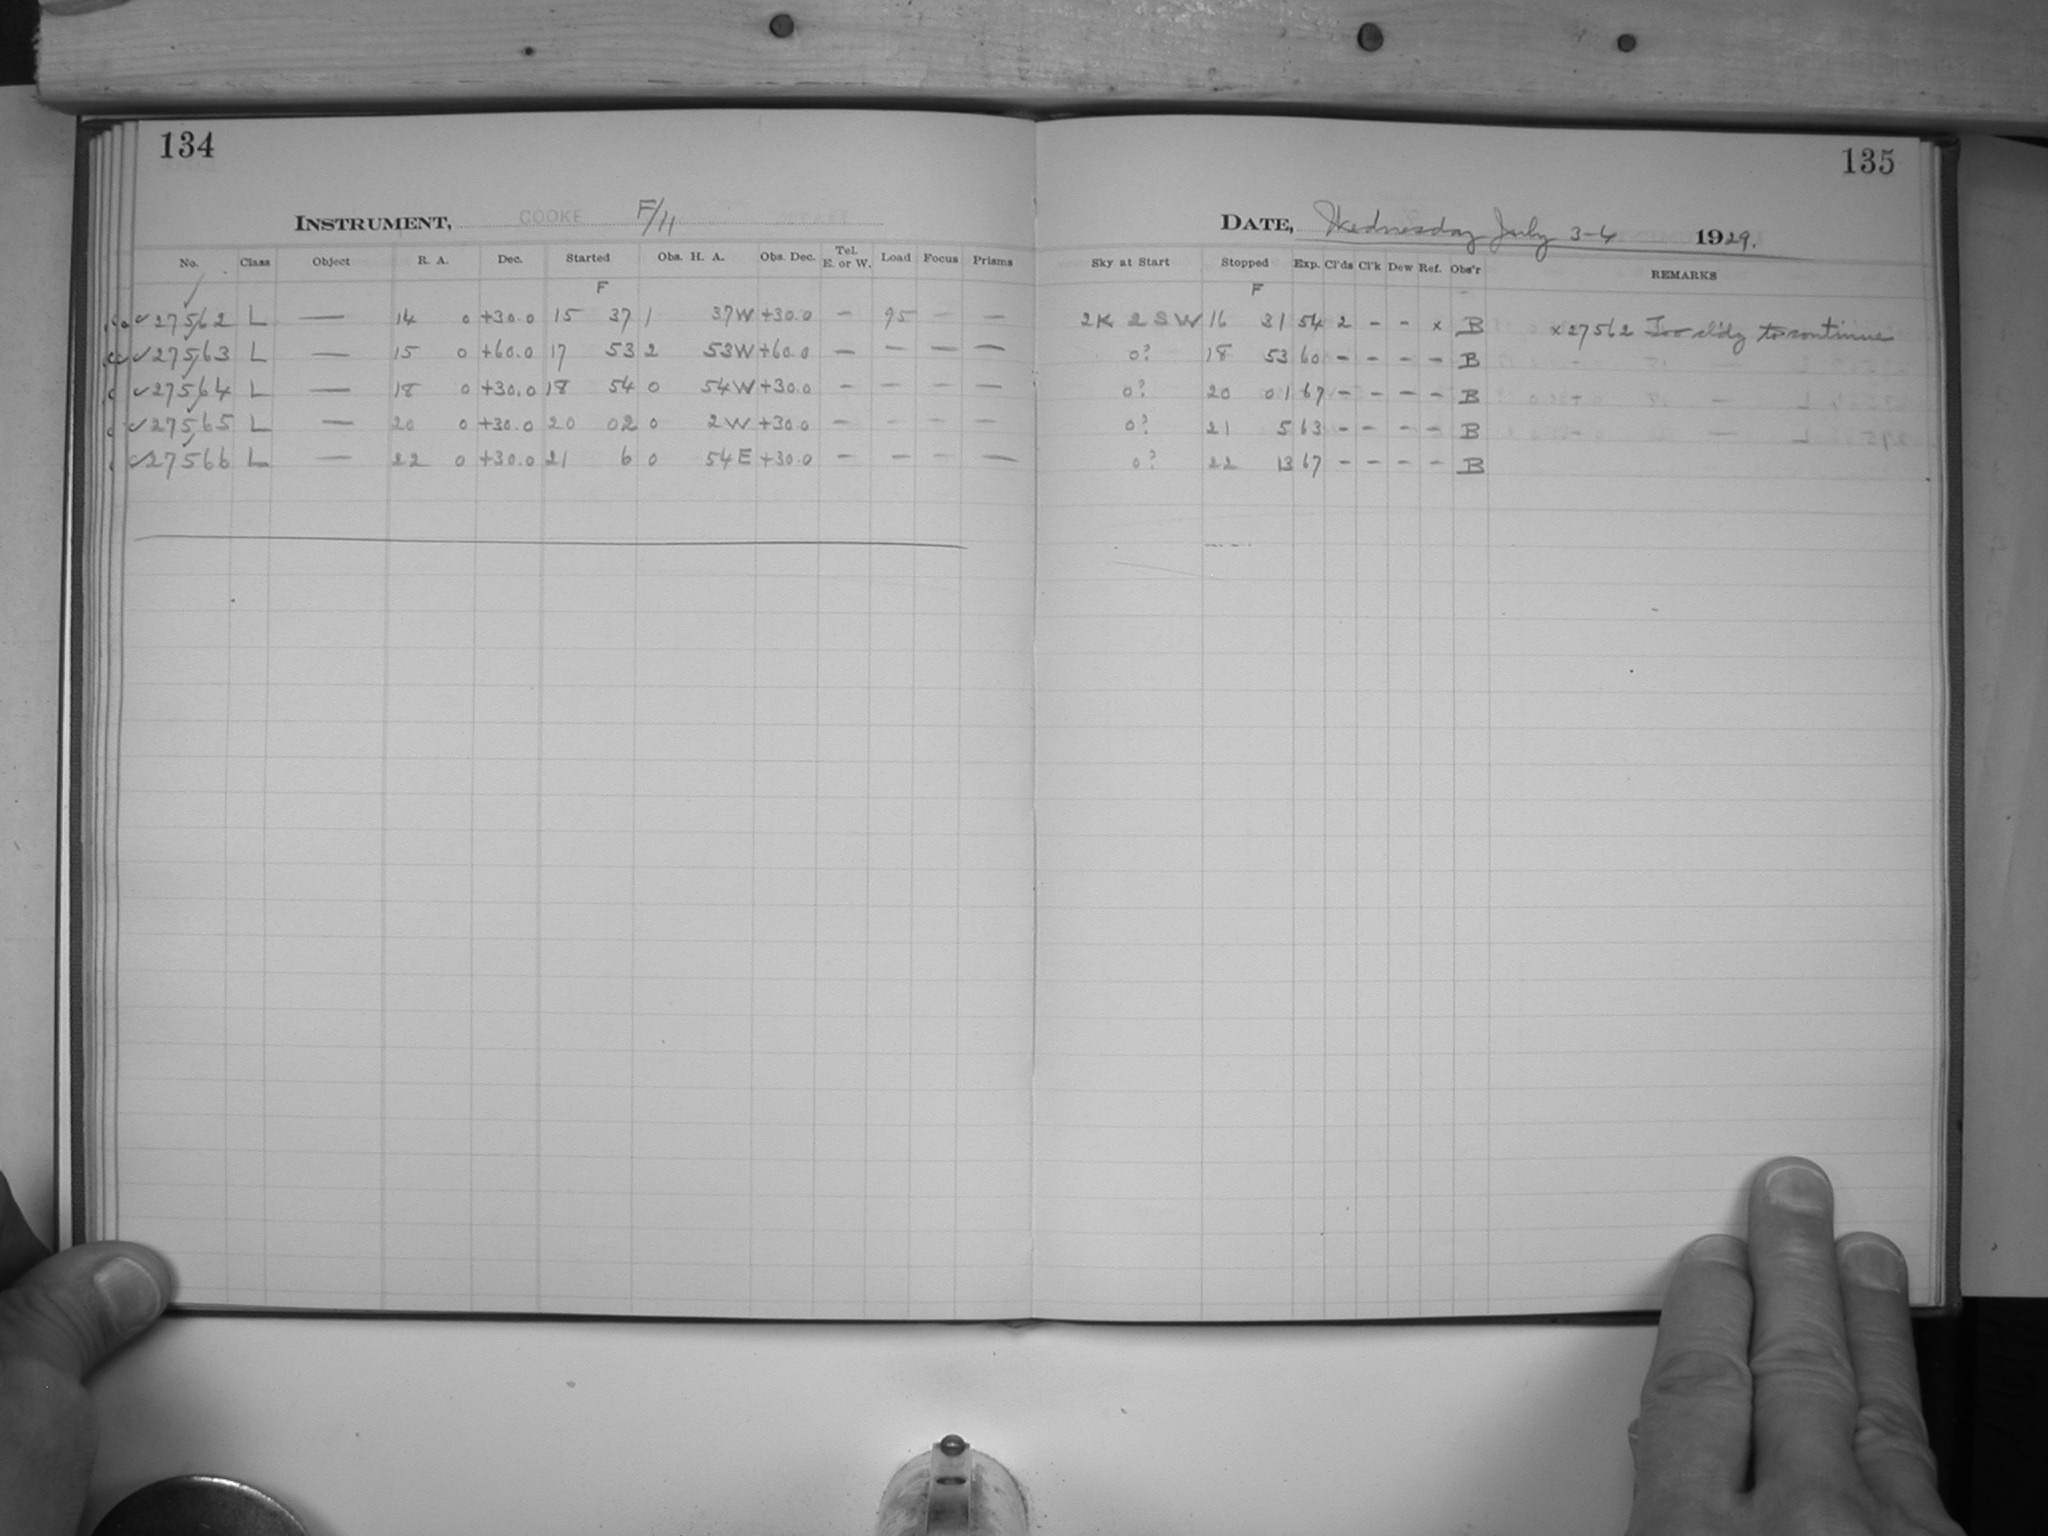 134
INSTRUMENT, COOKE F/11
No. Class Object R. A. Dec. Started Obs. H. A. Obs. Dec. Tel. E. or W. Load Focus Prisms
F
✓27562 L — 14 0 +30.0 15 37 1 37W +30.0 – 95 – –
✓27563 L — 15 0 +60.0 17 53 2 53W +60.0 – – – –
✓27564 L — 18 0 +30.0 18 54 0 54W +30.0 – – – –
✓27565 L — 20 0 +30.0 20 02 0 2W +30.0 – – – –
✓27566 L — 22 0 +30.0 21 6 0 54E +30.0 – – – –
135
DATE, Wednesday July 3-4 1929.
Sky at Start Stopped Exp. Cl'ds Cl'k Dew Ref. Obs'r REMARKS
F
2K 2SW 16 31 54 2 – – x B x27562 Too cl'dy to continue
0? 18 53 60 – – – – B
0? 20 01 67 – – – – B
0? 21 5 63 – – – – B
0? 22 13 67 – – – – B